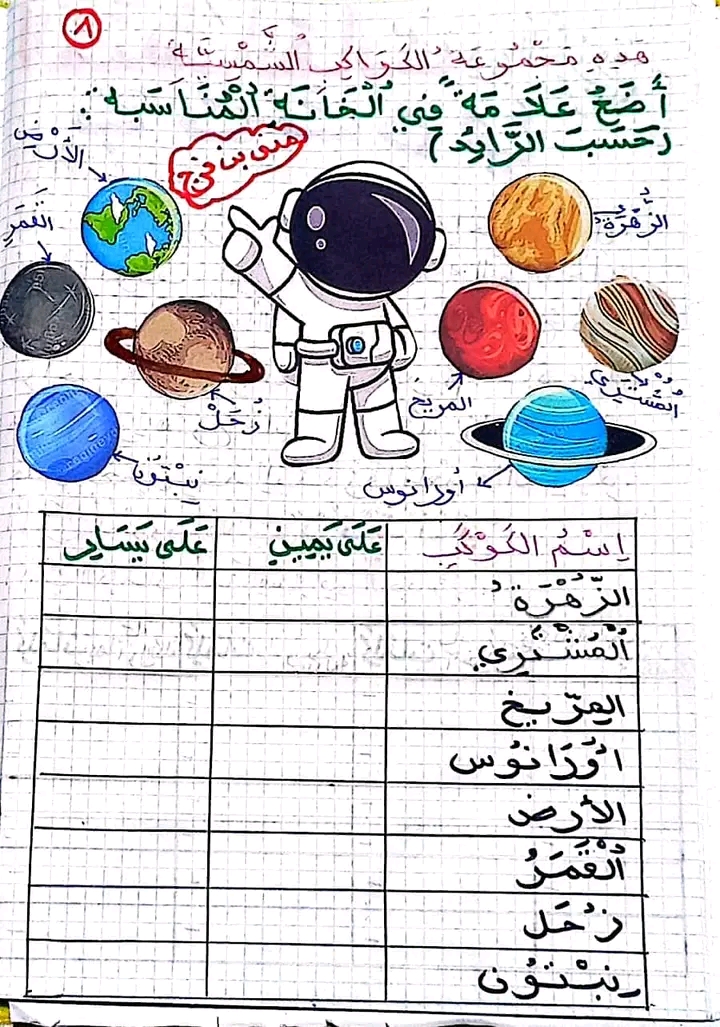 ٨
هَذِهِ مَجْمُوعَة الكَوَاكِب الشَّمْسِيَّة
أَضَعُ عَلَامَة فِي الْخَانَةِ الْمُنَاسَبة :
(حَسَبَ الرَّائِد)
الأَرْض
منى بن فرج
الزُّهْرَةُ
القَمَر
المُشْتَرِي
المريخ
زُحَلْ
نِبْتُون
أورانوس
اِسْمُ الكَوْكَبِ عَلَى يَمِينِ عَلَى يَسَارِ
الزُّهْرَة
الْمُشْتَرِي
المِرّيخ
اُورَانُوس
الأرض
الْقَمَرُ
زُحَل
نِبْتُون